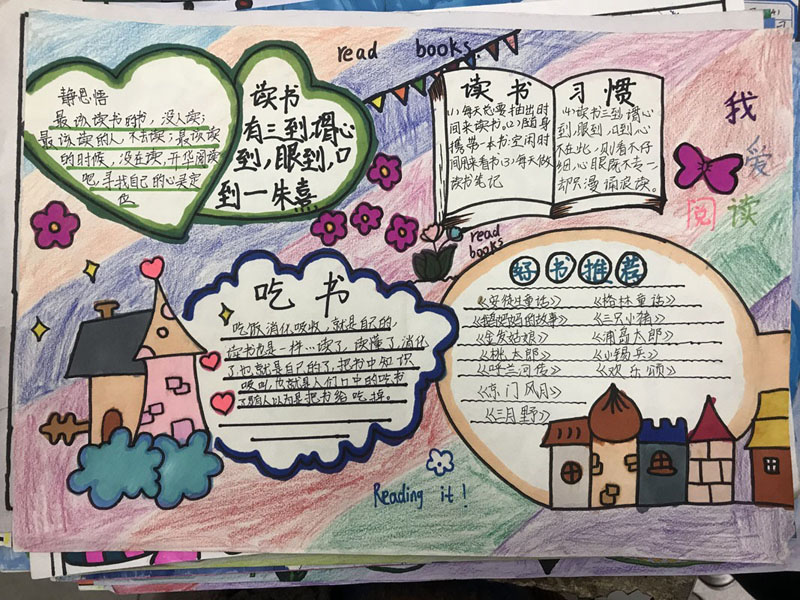 read books.
静思悟
最该读书时书，没人读；
最该读的人，不去读；最该读
的时候，没在读，开华阅读
吧，寻找自己的心灵定
位
读书
有三到,谓心
到,眼到,口
到一朱熹
读书 习惯
(1)每天总要抽出时
间来读书。(2)随身
携带一本书,空闲时
间用来看书(3)每天做
读书笔记
(4)读书三到谓心
到,眼到,口到,心
不在此,则看不仔
细,心眼既不专一,
却只漫诵浪读。
我
爱
阅读
read
books
吃书
吃饭消化吸收,就是自己的,
读书也是一样…读了,读懂了,消化
了,也就是自己的了,把书中知识
吸收,也就是人们口中的吃书
了,别人以为是把书给吃掉。
好书推荐
《安徒生童话》 《格林童话》
《鹅妈妈的故事》 《三只小猪》
《金发姑娘》 《浦岛太郎》
《桃太郎》 《小锡兵》
《呼兰河传》 《欢乐颂》
《京门风月》
《三月野》
Reading it!